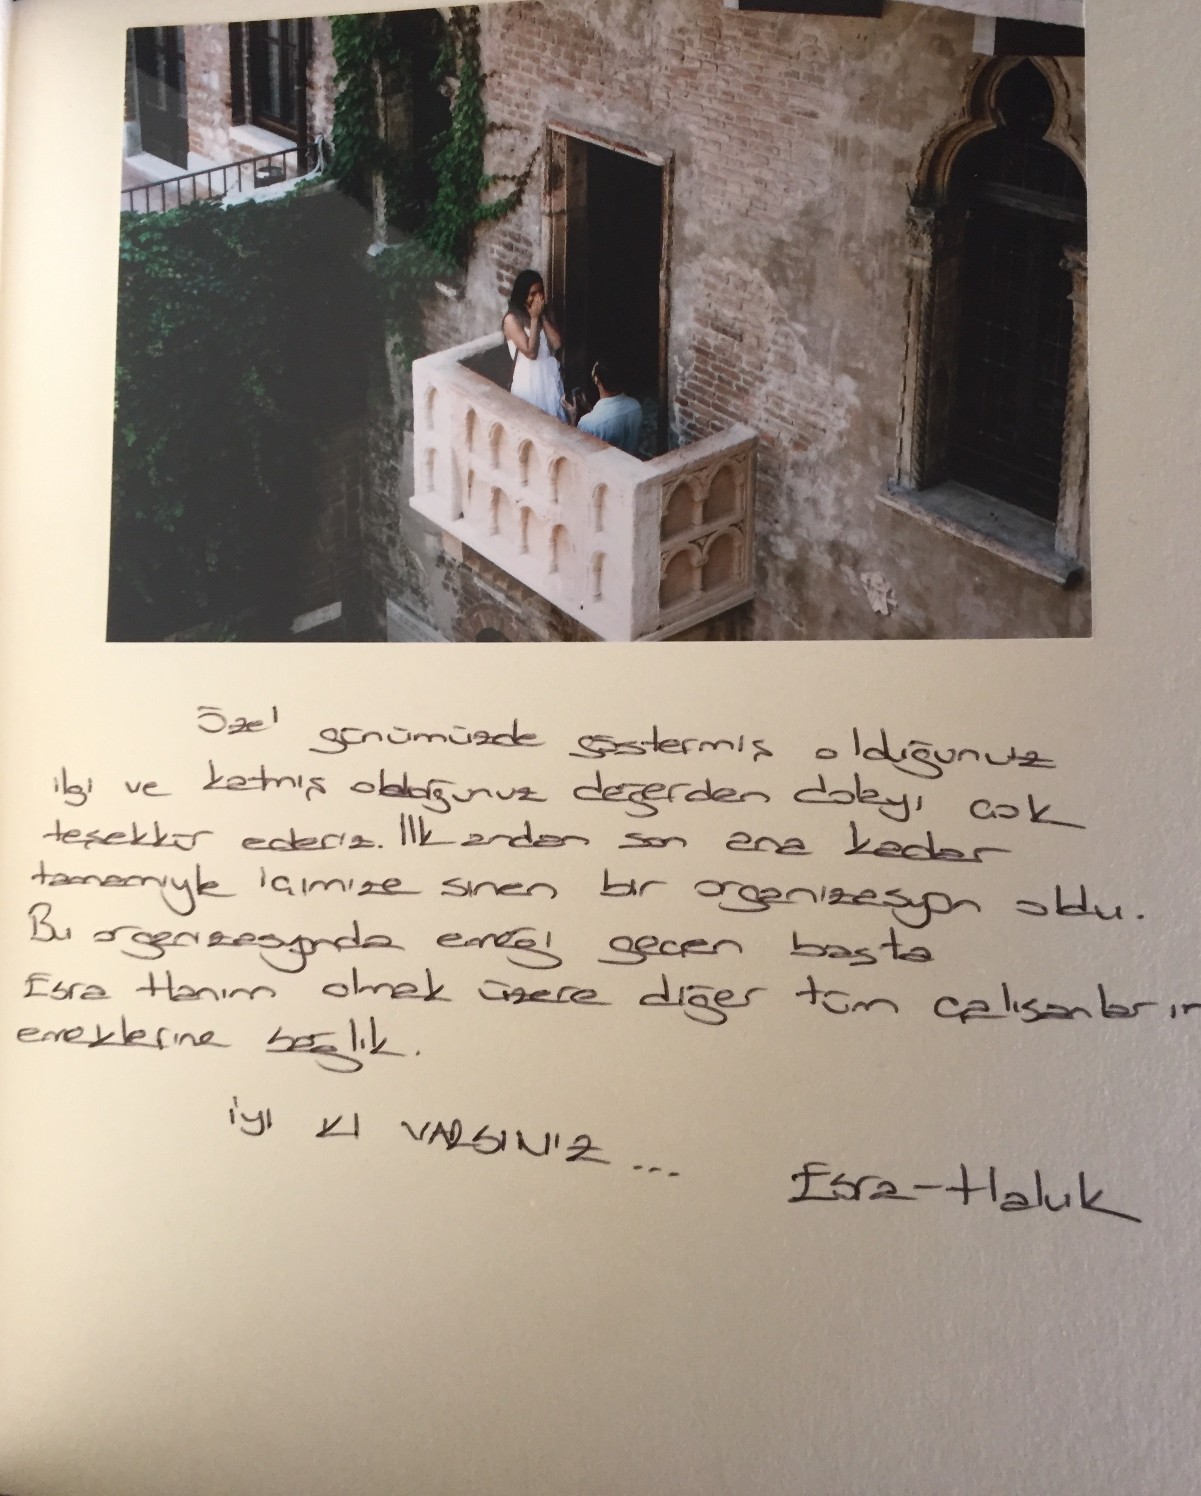 Özel günümüzde göstermiş olduğunuz
ilgi ve katmış olduğunuz değerden dolayı çok
teşekkür ederiz. İlk andan son ana kadar
tamamiyle içimize sinen bir organizasyon oldu.
Bu organizasyonda emeği geçen başta
Esra Hanım olmak üzere diğer tüm çalışanların
emeklerine sağlık.
İyi ki VARSINIZ...
Esra-Haluk